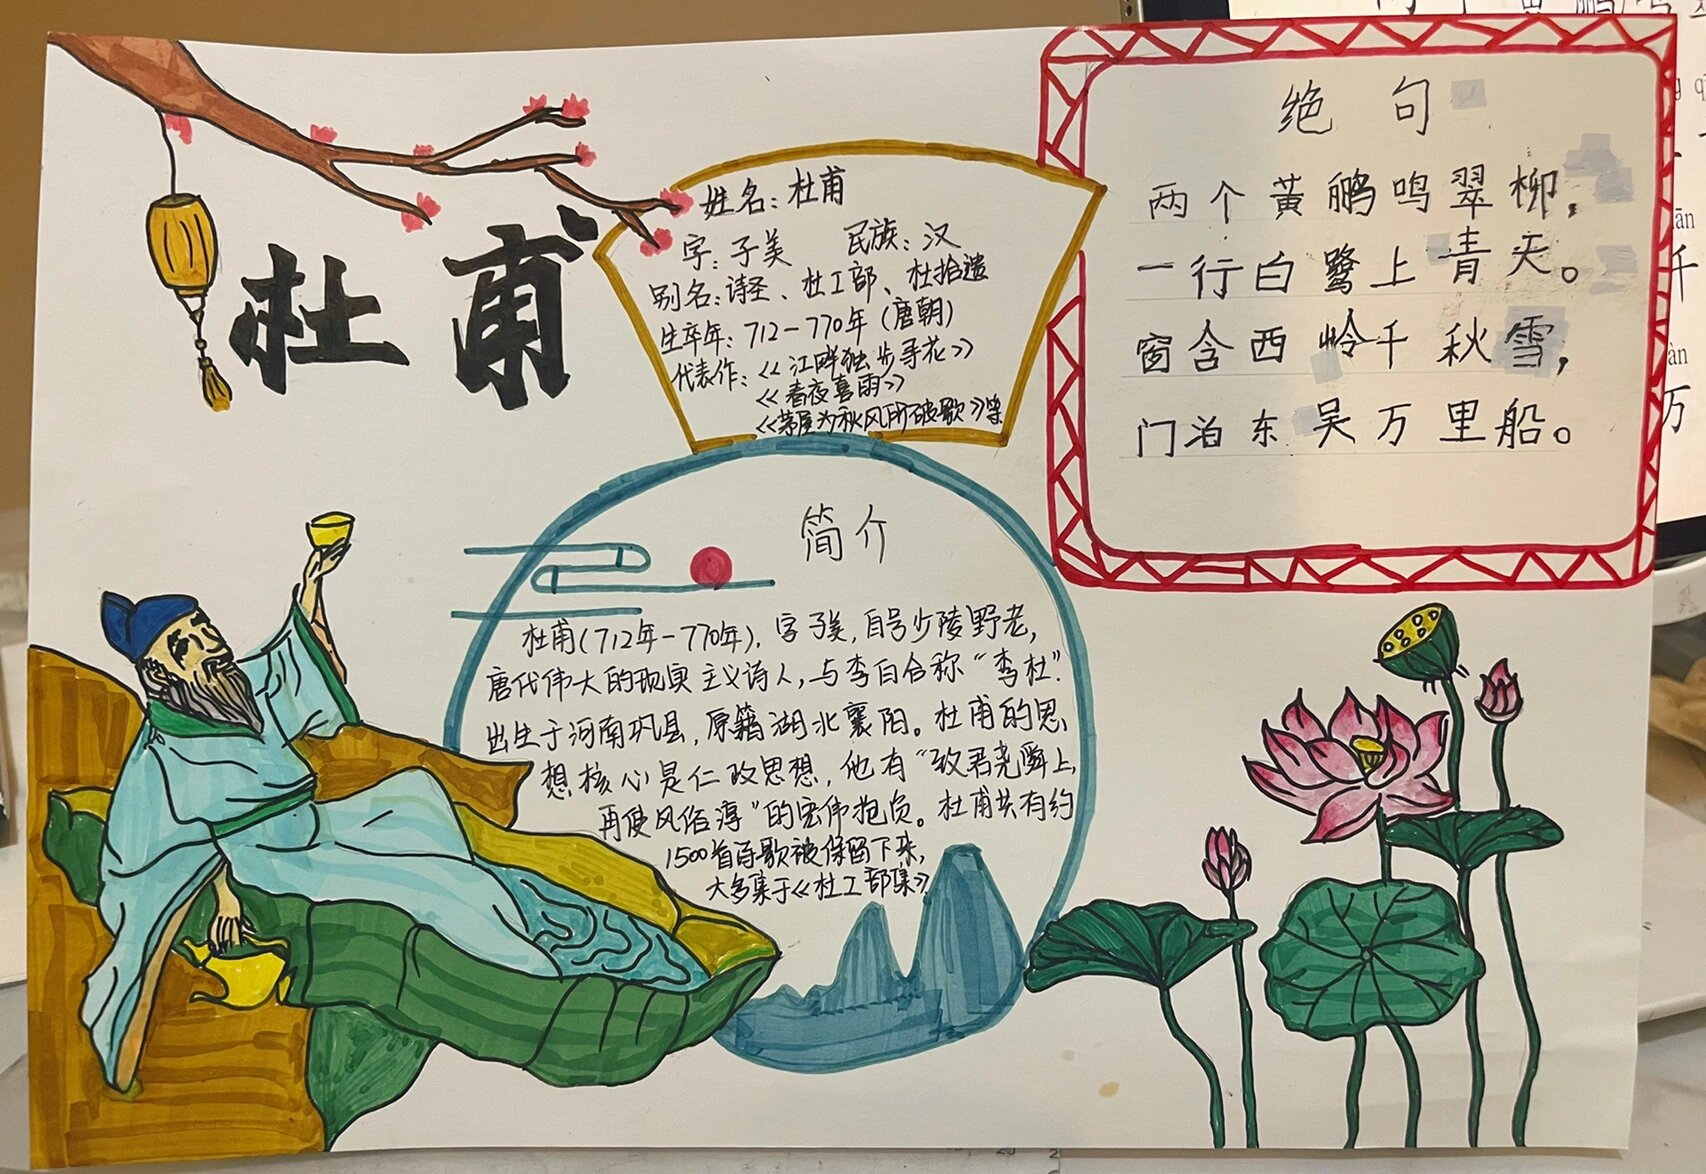 杜甫
姓名：杜甫
字：子美 民族：汉
别名：诗圣、杜工部、杜拾遗
生卒年：712－770年（唐朝）
代表作：《江畔独步寻花》
《春夜喜雨》
《茅屋为秋风所破歌》等
绝句
两个黄鹂鸣翠柳，
一行白鹭上青天。
窗含西岭千秋雪，
门泊东吴万里船。
简介
杜甫（712年－770年），字子美，自号少陵野老，
唐代伟大的现实主义诗人，与李白合称“李杜”。
出生于河南巩县，原籍湖北襄阳。杜甫的思
想核心是仁政思想，他有“致君尧舜上，
再使风俗淳”的宏伟抱负。杜甫共有约
1500首诗歌被保留下来，
大多集于《杜工部集》